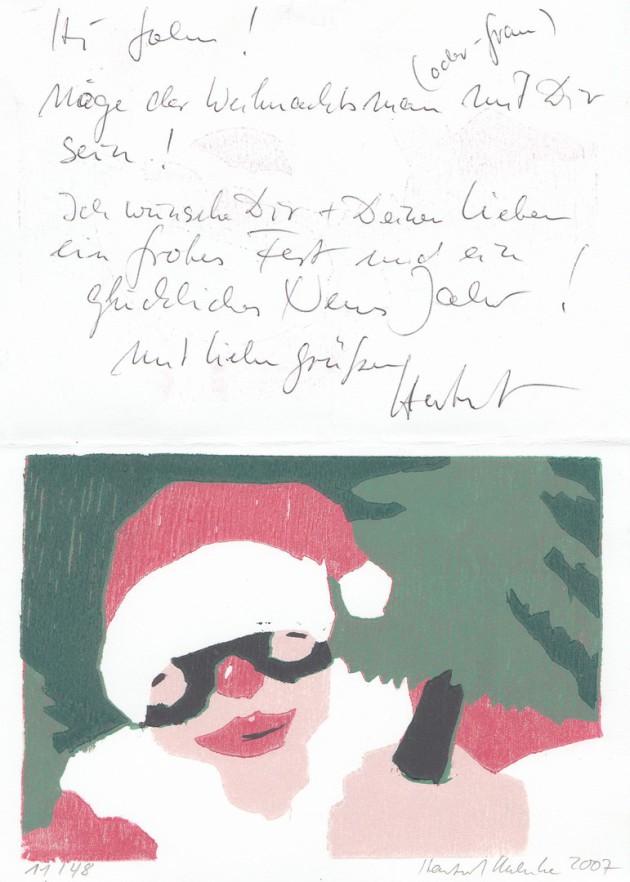 Hi John!
(oder -frau)
Möge der Weihnachtsmann mit Dir
sein!
Ich wünsche Dir + Deinen Lieben
ein frohes Fest und ein
glückliches Neues Jahr!
Mit lieben Grüßen
Herbert
11/48
Herbert 2007